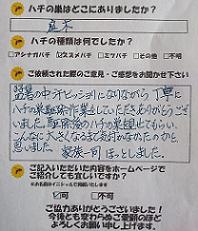 ハチの巣はどこにありましたか？
庭木
ハチの種類は何でしたか？
□アシナガバチ ☑スズメバチ □ミツバチ □その他 □不明
ご依頼された際のご意見・ご感想をお聞かせ下さい
猛暑の中汗ビッショリになりながら丁寧に
ハチの巣駆除作業をしていただきありがとうござい
ました。駆除後のハチの巣を見せてもらい、
こんなに大きくなるまで気付かなかったのかと
思いました。家族一同ほっとしました。
ご記入いただいた内容をホームページで
ご紹介しても宜しいですか？
☑可 □不可
ご協力ありがとうございました！
今後とも変わらぬご愛顧のほど
よろしくお願い申し上げます。